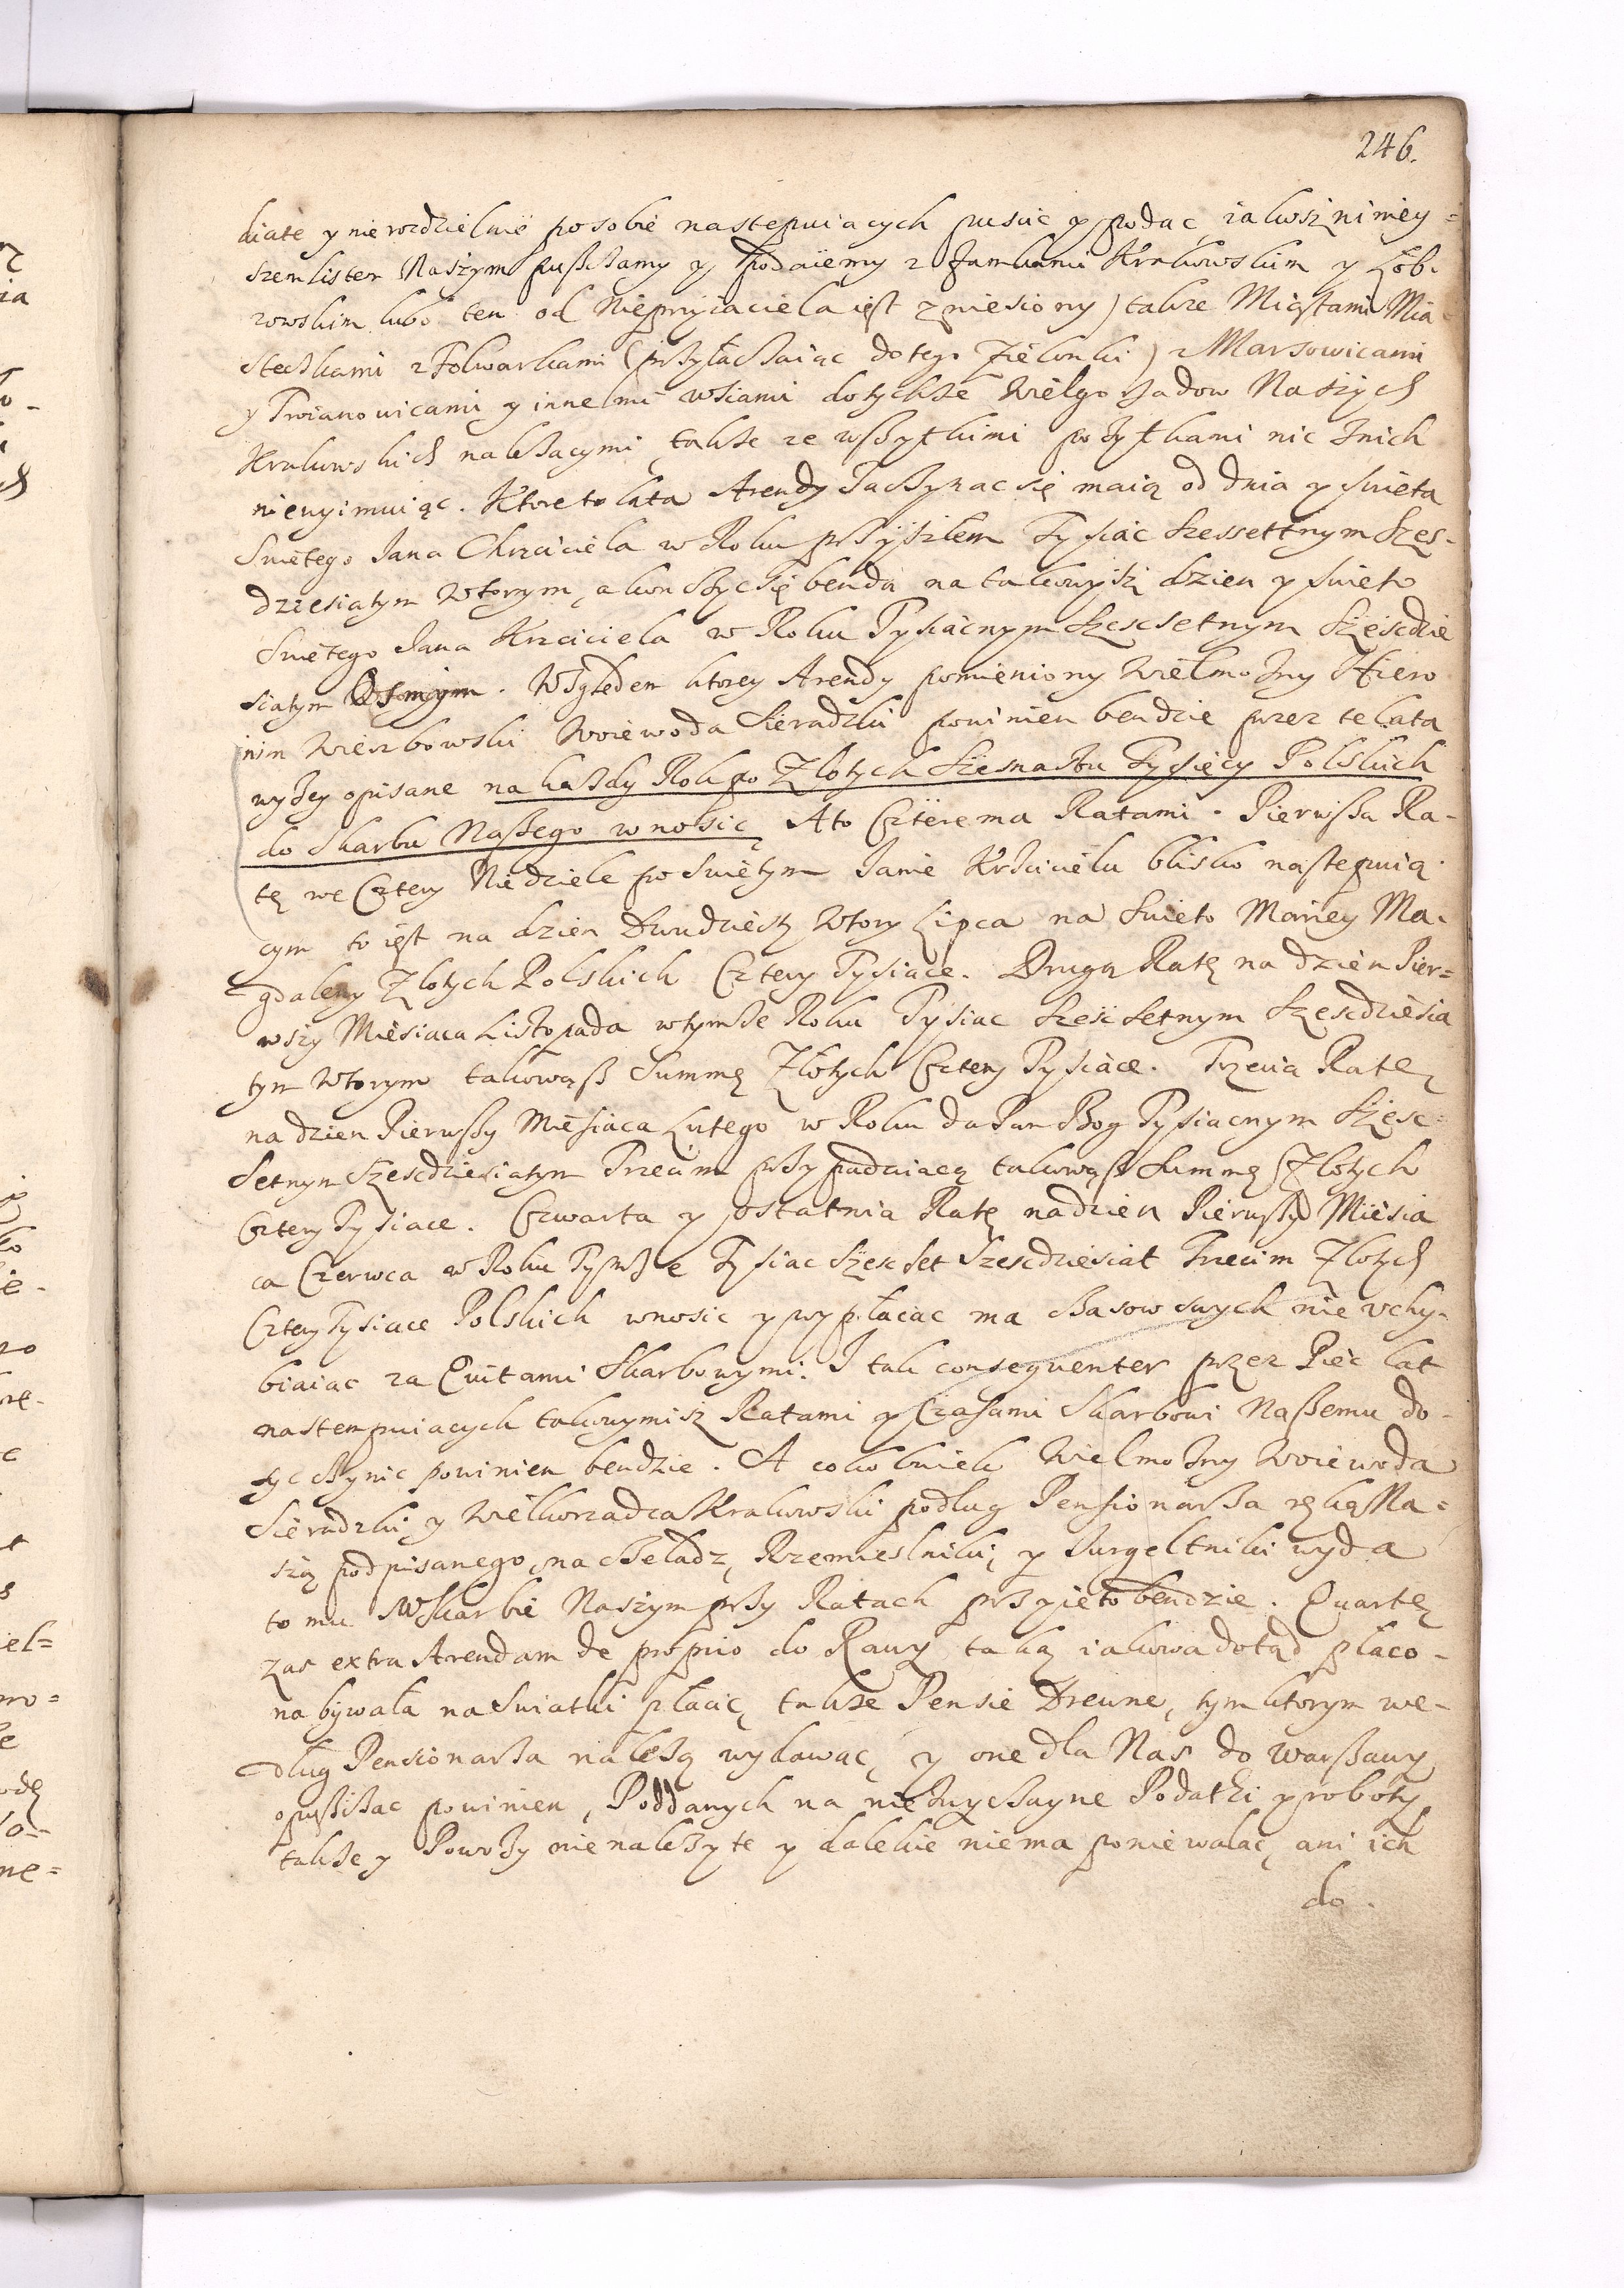 246.
kiate y nierozdzielnie posobie nastepuiacych puscic y podac, iakosz niniey=
szem listem Naszym pusczamy y podaiemy z Zamkami Krakowskim y Lob-
zowskim lubo ten od Nieprzyiaciela iest zniesiony) takze Miastami Mia-
steczkami z Folwarkami (przyłaczaiąc do tego Zielonki) z Marszowicami
y Troianowicami y innemi wsiami do tychze Wielgorzadow Naszych
Krakowskich nalezacymi, takze ze wszytkimi pozytkami nic znich
nieuyimuiąc. Ktore to lata Arendy Zaczynac się maią od dnia y swieta
Swietego Jana Chrzciciela w Roku przyszlem Tysiac Szessettnym Szes-
dziesiatym Wtorym, a konczyc się benda na takowyisz dzien y swieto
Swietego Jana Krzciciela w Roku Tysiacnym Szescsetnym Szescdzie
siatym Osmym. Wzgledem ktorey Arendy pomieniony Wielmozny Hiero
nim Wierzbowski Woiewoda Sieradzki powinien bendzie przez te lata
wyzey opisane na kazdy Rok po Zlotych Szesnastu Tysięcy Polskich
do Skarbu Naszego wnosic, A to Czterema Ratami. Pierwsza Ra-
tę we Cztery Niedziele po Swietym Janie Krzcicielu blisko nastepuią-
cym to iest na dzien Dwudziesty Wtory Lipca na Swieto Mariey Ma-
gdaleny Zlotych Polskich Cztery Tysiace. Drugą Ratę na dzien Pier=
wszy Miesiaca Listopada wtymze Roku Tysiac Szescsetnym Szescdziesia
tym Wtorym takowąsz Summę Zlotych Cztery Tysiace. Trzecia Ratę
na dzien Pierwszy Miesiaca Lutego w Roku da Pan Bog Tysiacnym Szesc=
setnym Szescdziesiatym Trzecim przypadaiacą takowąsz Summę Zlotych
Cztery Tysiace. Czwarta y ostatnia Ratę nadzien Pierwszy Miesia
ca Czerwca w Roku Tymze Tysiac Szescset Szescdziesiat Trzecim Zlotych
Cztery Tysiace Polskich wnosic y wypłacac ma Czasow swych nie vchy-
biaiac za Quitami Skarbowymi. I tak consequenter przez Piec lat
nastempuiacych takowymisz Ratami y Czasami Skarbowi Naszemu do-
syc czynic powinien bendzie. A cokolwiek Wielmozny Woiewoda
Sieradzki y Wielkorzadca Krakowski podlug Pensionarza ręką Na=
szą podpisanego, na czeladz, Rzemieslniki, y Jurgeltniki wyda
to mu w Skarbie Naszym przy Ratach przyieto bendzie. Quartę
zas extra Arendam de proprio do Rawy taką iakowa dotąd płaco-
na bywała na Swiatki płacic, takze Pensie Drewne, tym ktorym we-
dlug Pensionarza nalezą wydawac, y one dla Nas do Warszawy
opusczac powinien, Poddanych na niezwyczayne Podatki y roboty
takze y Powozy nienalezyte y dalekie niema poniewalac, ani ich
do.